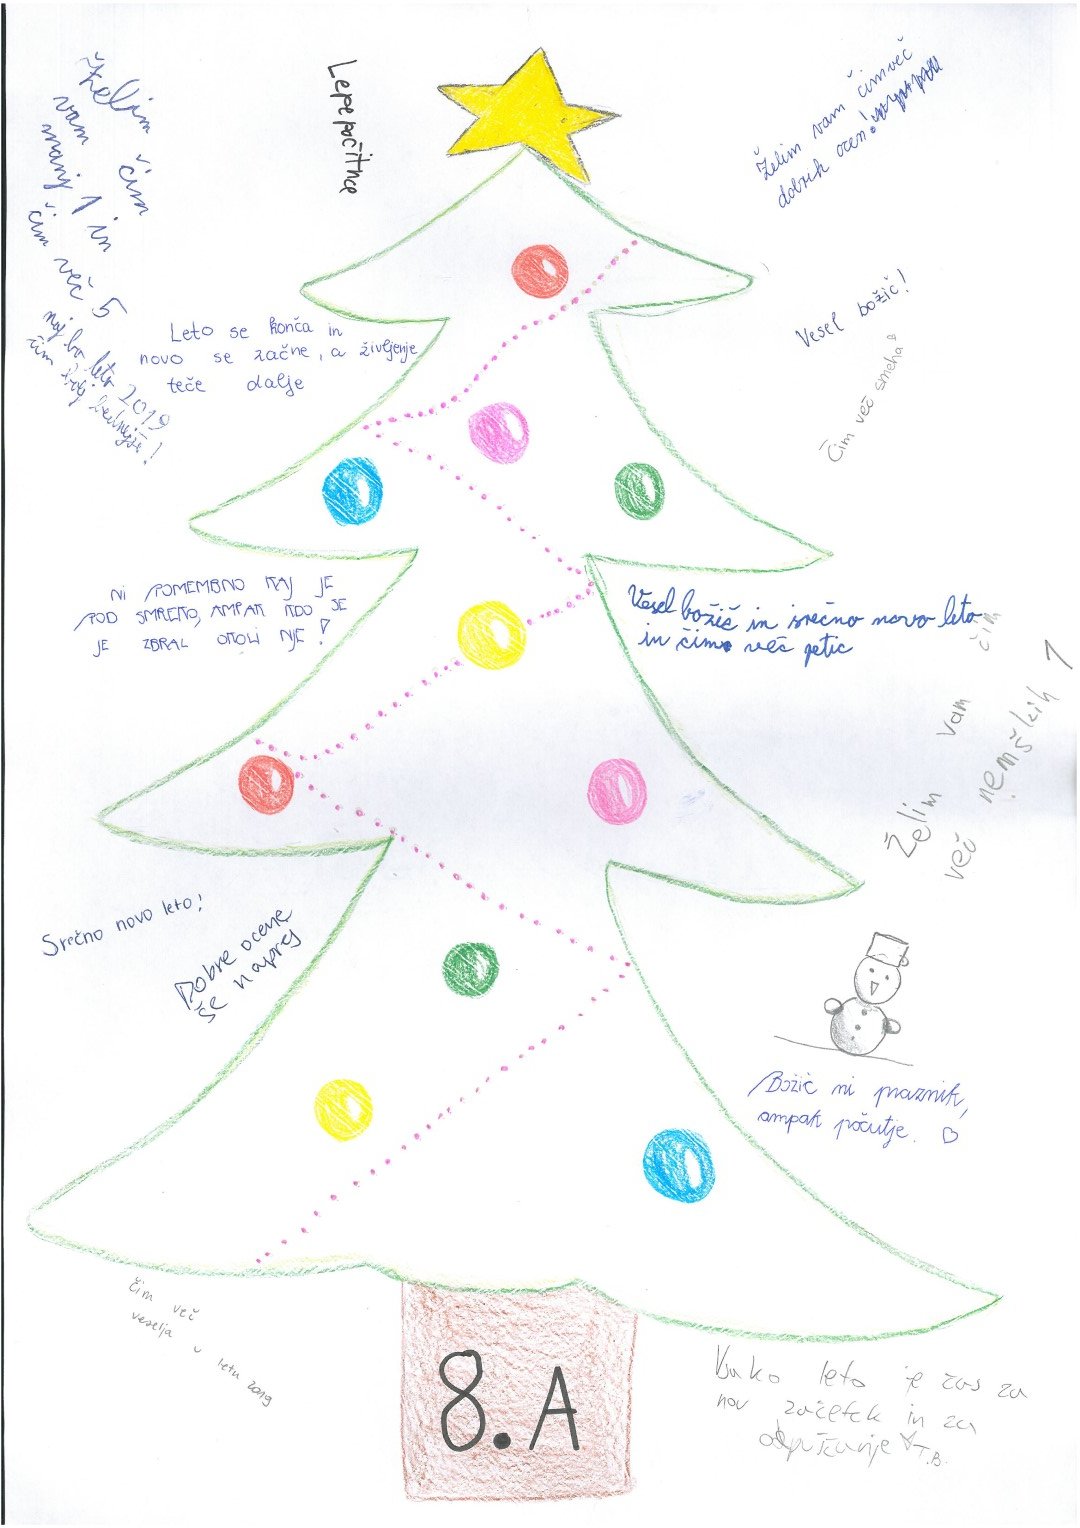 Želim čim
vam
manj 1 in
čim več 5
naj bo leto 2019
čim bolj
Lepe počitnce
Želim vam čimveč
dobrih ocen!
Leto se konča in
novo se začne, a življenje
teče dalje
Vesel božič!
Čim več smeha!
NI POMEMBNO KAJ JE
POD SMREKO, AMPAK KDO SE
JE ZBRAL OKOLI NJE!
Vesel božič in srečno novo leto
in čim več petic
Želim vam čim
več nemških 1
Srečno novo leto!
Dobre ocene
še naprej
Božič ni praznik,
ampak počutje.
čim več
veselja v letu 2019
Vsako leto je čas za
nov začetek in za
odpuščanje T.B.
8.A